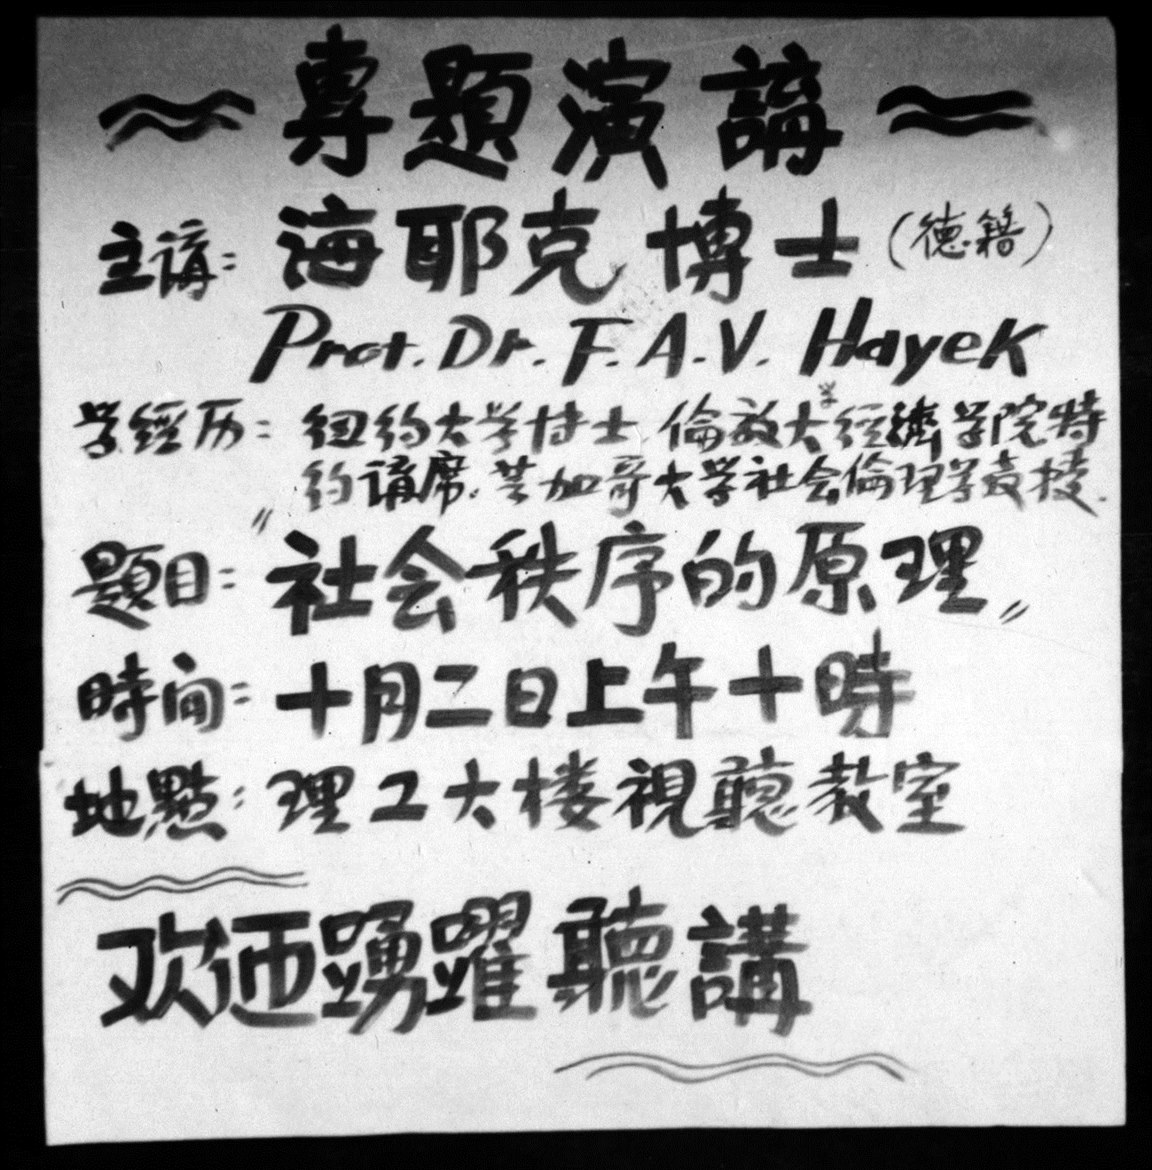 專題演講
主講: 海耶克 博士 (德籍)
Prof. Dr. F. A. V. Hayek
学經历: 紐約大学博士. 倫敦大学經濟学院特
約講席. 芝加哥大学社会倫理学教授.
題目: "社会秩序的原理"
時间: 十月二日上午十時
地點: 理工大楼視聽教室
欢迊踴躍聽講